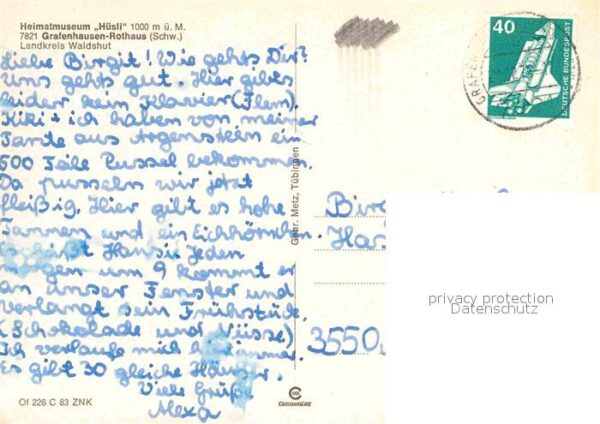 Heimatmuseum „Hüsli" 1000 m ü. M.
7821 Grafenhausen-Rothaus (Schw.)
Landkreis Waldshut
Liebe Birgit! Wie gehts Dir?
Uns gehts gut. Hier gibts
leider kein Klavier (Flem).
Kiki + ich haben von meiner
Tante aus Argenstein ein
500 Teile Pussel bekommen.
Da pusseln wir jetzt
fleißig. Hier gibt es hohe
Tannen und ein Eichhörnchen.
Hansi. Jeden
um 9 kommt er
an unser Fenster und
verlangt sein Frühstück.
(Schokolade und Nüsse)
Ich verlaufe mich
Es gibt 30 gleiche Häuser.
Viele Grüße
Alexa
Of 226 C 83 ZNK
Gebr. Metz, Tübingen
40
DEUTSCHE BUNDESPOST
3550
privacy protection
Datenschutz